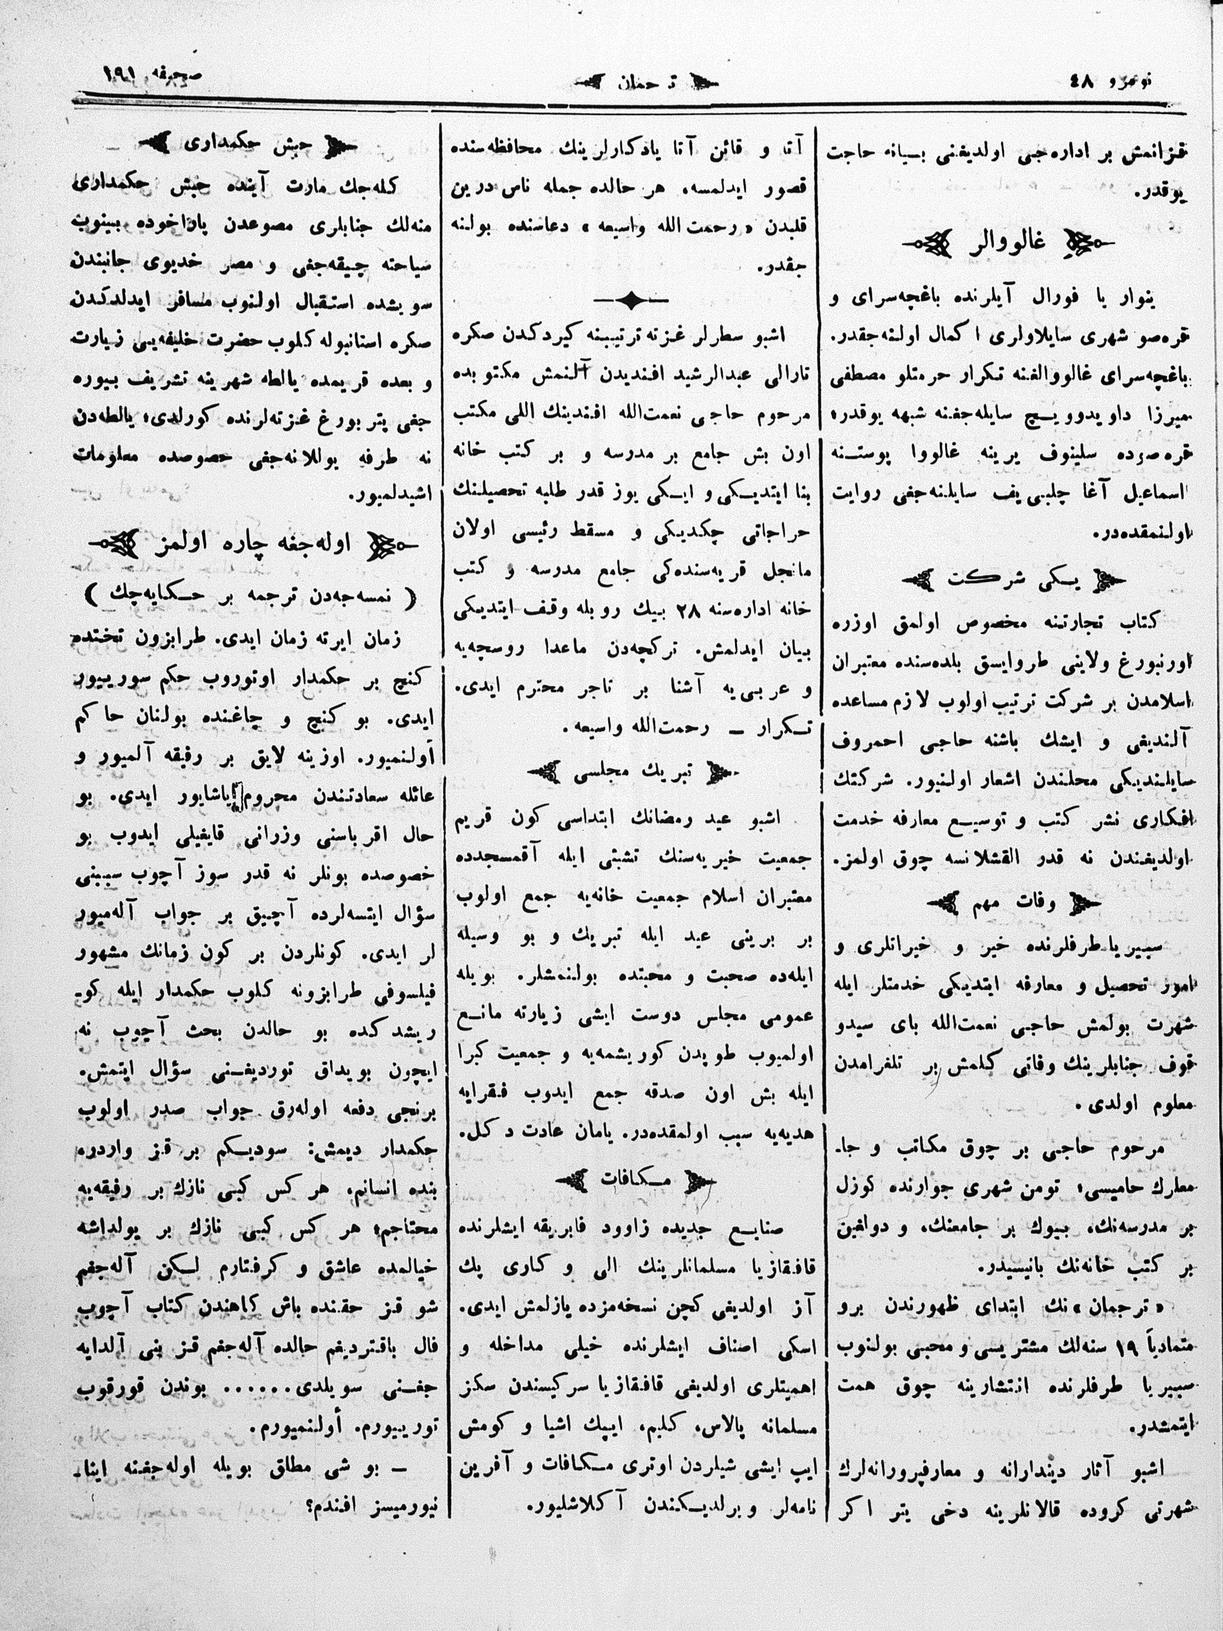 نومرو ٤٨
ترجمان
صحیفه ١٩١
قزانمش بر اداره‌جی اولدیغنی بسیانه حاجت
یوقدر.
غالووالر
ینوار یا فورال آیلرنده باغچه‌سرای و
قره‌صو شهری سایلاولری اكمال اولنه‌جقدر.
باغچه‌سرای غالووالغنه تكرار حرمتلو مصطفی
میرزا داویدوویچ سایله‌جغنه شبهه یوقدر؛
قره‌صوده سلینوف یرینه غالووا پوستنه
اسماعیل آغا چلبی‌یف سایلنه‌جغی روایت
اولنمقده‌در.
یكی شركت
كتاب تجارتنه مخصوص اولمق اوزره
اورنبورغ ولاینی طروایسق بلده‌سنده معتبران
اسلامدن بر شركت ترتیب اولوب لازم مساعده
آلندیغی و ایشك باشنه حاجی احمروف
سایلندیكی محلندن اشعار اولنیور. شركتك
افكاری نشر كتب و توسیع معارفه خدمت
اولدیغندن نه قدر القشلانسه چوق اولمز.
وفات مهم
سیبریا طرفلرنده خیر و خیراتلری و
امور تحصیل و معارفه ایتدیكی خدمتلر ایله
شهرت بولمش حاجی نعمت‌الله بای سیدو
قوف جنابلرینك وفاتی كیلمش بر تلغرامدن
معلوم اولدی.
مرحوم حاجی بر چوق مكاتب و جا-
معلرك حامیسی؛ تومن شهری جوارنده كوزل
بر مدرسه‌نك، بیوك بر جامعنك، و دولغین
بر كتب خانه‌نك بانیسیدر.
«ترجمان»نك ابتدای ظهورندن برو
متمادیاً ١٩ سنه‌لك مشتریسی و محبی بولنوب
سیبریا طرفلرنده انتشارینه چوق همت
ایتمشدر.
اشبو آثار دیندارانه و معارفپرورانه‌لرك
شهرتی كروده قالانلرینه دخی یتر اكر
آتا و قائن آتا یادكارلرینك محافظه‌سنده
قصور ایدلمسه، هر حالده جمله ناس درین
قلبدن «رحمت الله واسیعه» دعاسنده بولنه
جقدر.
اشبو سطرلر غزته ترتیبنه كیردكدن صكره
تارالی عبدالرشید افندیدن آلنمش مكتوبده
مرحوم حاجی نعمت‌الله افندینك اللی مكتب
اون بش جامع بر مدرسه و بر كتب خانه
بنا ایتدیكی و ایكی یوز قدر طلبه تحصیلنك
حراجاتی چكدیكی و مسقط رئیسی اولان
مانجل قریه‌سنده‌كی جامع مدرسه و كتب
خانه اداره‌سنه ٢٨ بیك روبله وقف ایتدیكی
بیان ایدلمش. تركچه‌دن ماعدا روسچه‌یه
و عربی‌یه آشنا بر تاجر محترم ایدی.
تكرار – رحمت‌الله واسیعه.
تبریك مجلسی
اشبو عید رمضانك ابتداسی كون قریم
جمعیت خیریه‌سنك تشبثی ایله آقمسجدده
معتبران اسلام جمعیت خانه‌یه جمع اولوب
بر برینی عید ایله تبریك و بو وسیله
ایله‌ده صحبت و محبتده بولنمشلر. بویله
عمومی مجلس دوست ایشی زیارته مانع
اولمیوب طویدن كوریشمه‌یه و جمعیت كبرا
ایله بش اون صدقه جمع ایدوب فقرایه
هدیه‌یه سبب اولمقده‌در. یامان عادت دكل.
مكافات
صنایع جدیده زاوود فابریقه ایشلرنده
قافقازیا مسلمانلرینك الی و كاری پك
آز اولدیغی كچن نسخه‌مزده یازلمش ایدی.
اسكی اصناف ایشلرنده خیلی مداخله و
اهمیتلری اولدیغی قافقازیا سركیسندن سكز
مسلمانه پالاس، كلیم، ایپك اشیا و كومش
ایپ ایشی شیلردن اوتری مكافات و آفرین
نامه‌لر ویرلدیكندن آكلاشلیور.
حبش حكمداری
كله‌جك مارت آینده حبش حكمداری
منه‌لك جنابلری مصوعدن پاراخوده بینوب
سیاحته چیقه‌جغی و مصر خدیوی جانبندن
سویشده استقبال اولنوب مسافر ایدلدكدن
صكره استانبوله كلوب حضرت خلیفه‌یی زیارت
و بعده قریمده یالطه شهرینه تشریف بیوره
جغی پتربورغ غزته‌لرنده كورلدی؛ یالطه‌دن
نه طرفه یوللانه‌جغی خصوصده معلومات
اشیدلمیور.
اوله‌جغه چاره اولمز
( نمسه‌جه‌دن ترجمه بر حكایه‌چك )
زمان ایرته زمان ایدی. طرابزون تختنده
كنچ بر حكمدار اوتوروب حكم سورییور
ایدی. بو كنچ و چاغنده بولنان حاكم
أولنمیور. اوزینه لایق بر رفیقه آلمیور و
عائله سعادتندن محروم یاشایور ایدی. بو
حال اقرباسنی وزرانی قایغیلی ایدوب بو
خصوصده بونلر نه قدر سوز آچوب سببنی
سؤال ایتسه‌لرده آچیق بر جواب آله‌میور
لر ایدی. كونلردن بر كون زمانك مشهور
فیلسوفی طرابزونه كلوب حكمدار ایله كو-
ریشدكده بو حالدن بحث آچوب نه
ایچون بویداق توردیغنی سؤال ایتمش.
برنجی دفعه اوله‌رق جواب صدر اولوب
حكمدار دیمش: سودیكم بر قز واردره
بنده انسانم، هر كس كبی نازك بر رفیقه‌یه
محتاجم؛ هر كس كبی نازك بر یولداشه
خیالمده عاشق و كرفتارم لكن آله‌جغم
شو قز حقنده باش كاهندن كتاب آچوب
فال باقتردیغم حالده آله‌جغم قز بنی آلدایه
جغنی سویلدی...... بوندن قورقوب
تورییورم. أولنمیورم.
— بو شی مطلق بویله اوله‌جغنه اینا-
نیورمیسز افندم؟